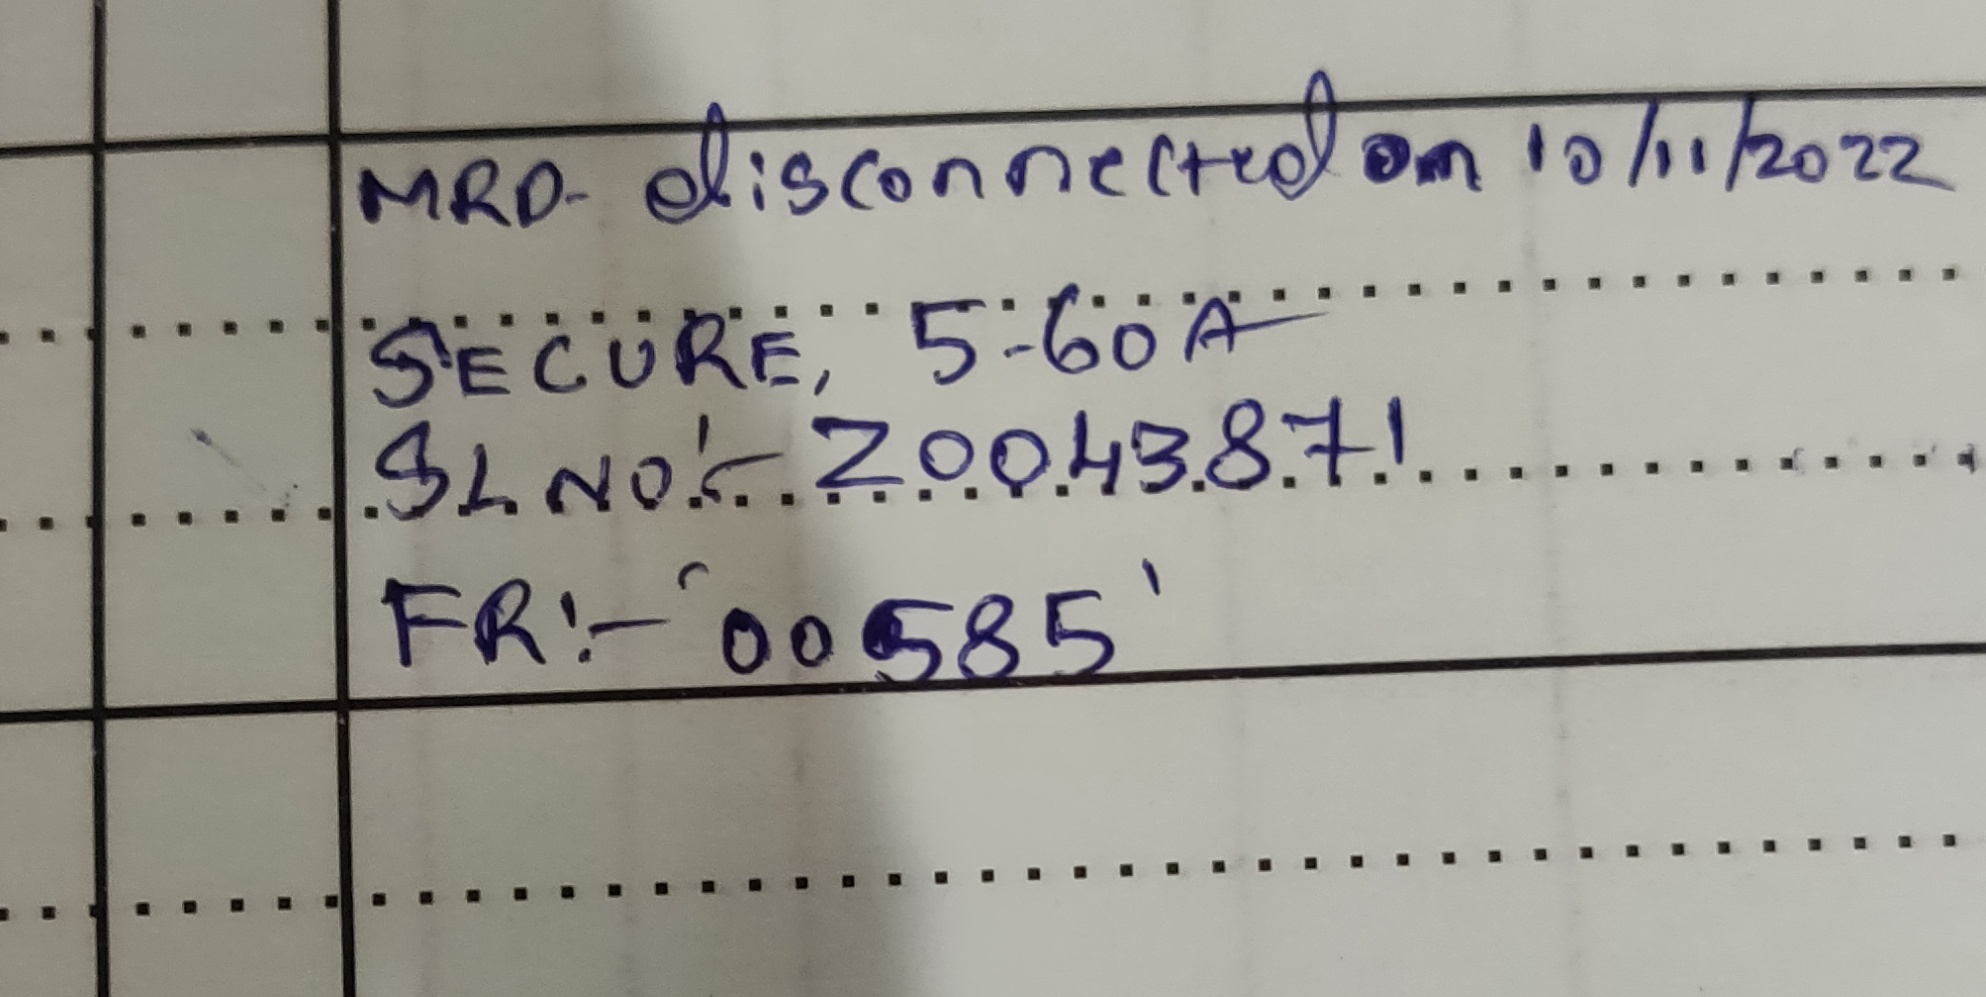 MRD- disconnected on 10/11/2022
SECURE, 5-60A
SL NO:- 20043871
FR:- '00585'